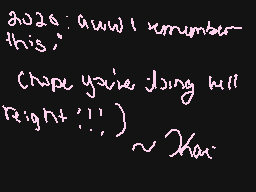 2020: aww I remember
this,"
(hope you're doing well
reight !!! )
~ Kai